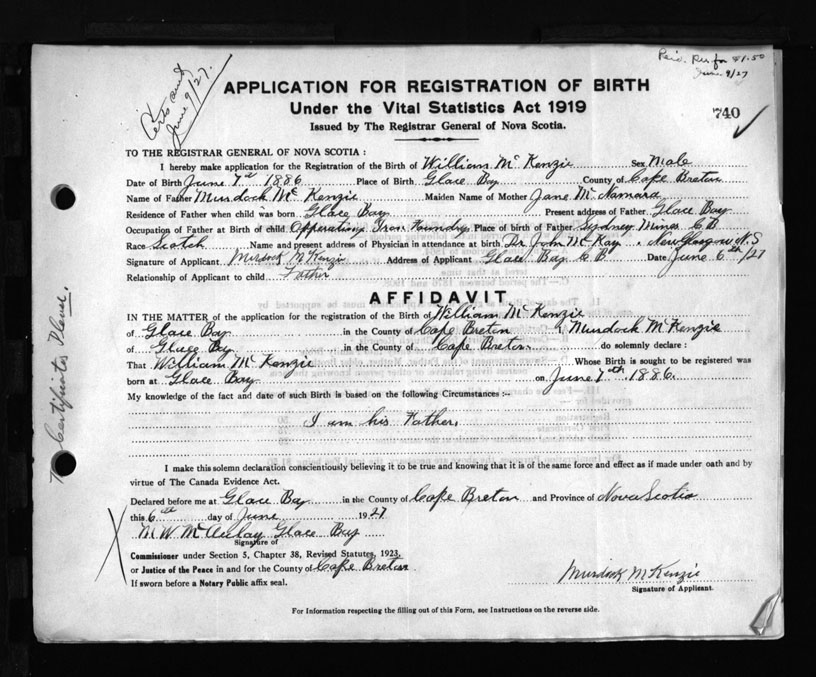 Paid. Rec for $1.50
June 9/27
Certs sent
June 9/27.
APPLICATION FOR REGISTRATION OF BIRTH
Under the Vital Statistics Act 1919
Issued by The Registrar General of Nova Scotia.
740
TO THE REGISTRAR GENERAL OF NOVA SCOTIA :
I hereby make application for the Registration of the Birth of William McKenzie Sex Male
Date of Birth June 7th 1886 Place of Birth Glace Bay County of Cape Breton
Name of Father Murdock McKenzie Maiden Name of Mother Jane McNamara
Residence of Father when child was born Glace Bay Present address of Father Glace Bay
Occupation of Father at Birth of child Opperating Iron Foundry Place of birth of Father Sydney Mines C B
Race Scotch Name and present address of Physician in attendance at birth Dr John McKay, New Glasgow N.S
Signature of Applicant Murdock McKenzie Address of Applicant Glace Bay C B Date June 6th/27
Relationship of Applicant to child Father
AFFIDAVIT
IN THE MATTER of the application for the registration of the Birth of William McKenzie
of Glace Bay in the County of Cape Breton I, Murdock McKenzie
of Glace Bay in the County of Cape Breton do solemnly declare :
That William McKenzie Whose Birth is sought to be registered was
born at Glace Bay on June 7th 1886.
My knowledge of the fact and date of such Birth is based on the following Circumstances :-
I am his Father.
I make this solemn declaration conscientiously believing it to be true and knowing that it is of the same force and effect as if made under oath and by
virtue of The Canada Evidence Act.
Declared before me at Glace Bay in the County of Cape Breton and Province of Nova Scotia
this 6th day of June 1927
M W McAulay Glace Bay
Signature of
Commissioner under Section 5, Chapter 38, Revised Statutes, 1923,
or Justice of the Peace in and for the County of Cape Breton
If sworn before a Notary Public affix seal.
Murdock McKenzie
Signature of Applicant.
For Information respecting the filling out of this Form, see Instructions on the reverse side.
Certificates Please.